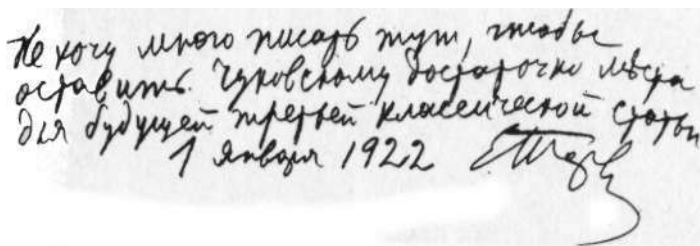 Не хочу много писать тут, чтобы
оставить Чуковскому достаточно мѣста
для будущей третьей классической статьи
1 января 1922